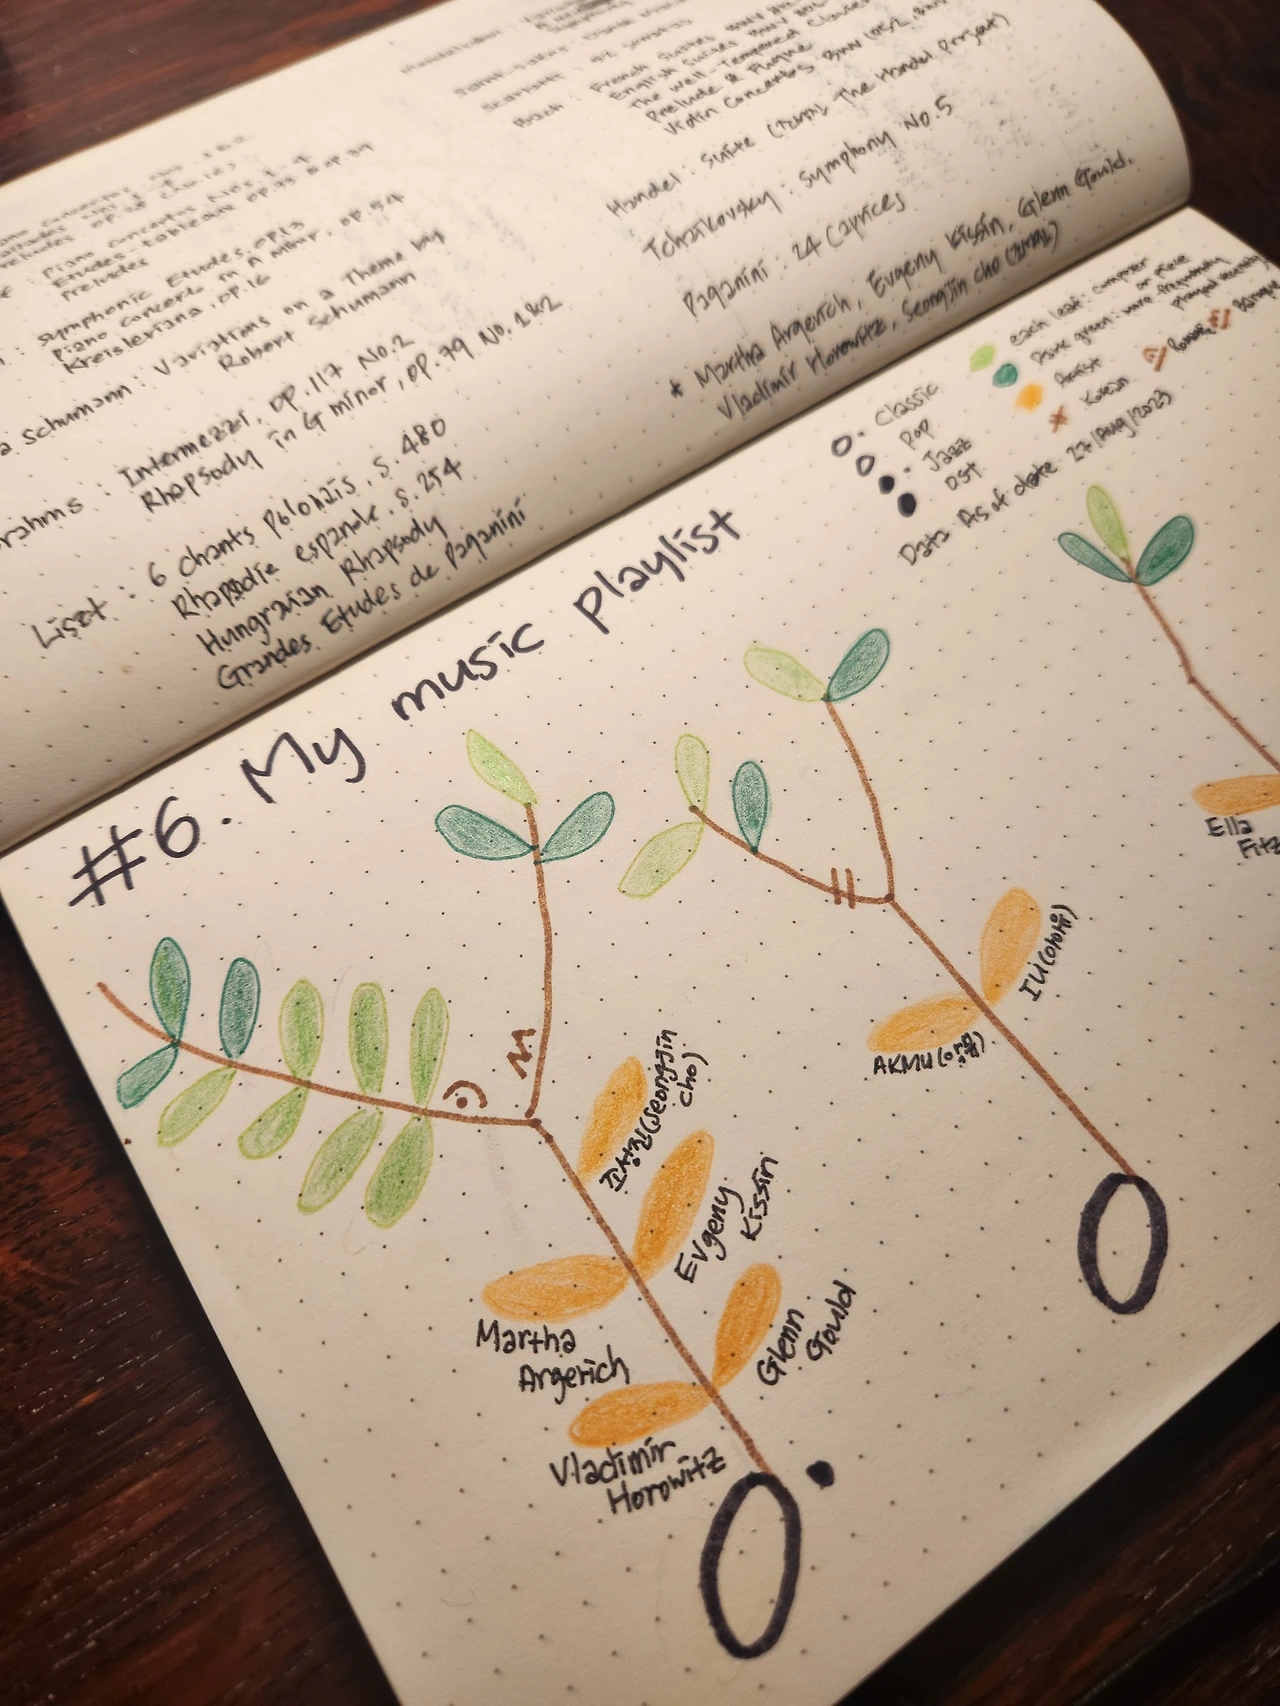 Scarlatti :
Bach : French Suites BWV
English Suites BWV
The Well-Tempered
Prelude & Fugue
Violin Concertos BWV 1052, BWV
Handel : Suite (조성진, The Handel Project)
Tchaikovsky : Symphony No.5
Paganini : 24 Caprices
* Martha Argerich, Evgeny Kissin, Glenn Gould,
Vladimir Horowitz, Seongjin Cho (조성진)
Piano Concertos Nos.
Etudes-tableaux op.33 & op.39
Preludes
Symphonic Etudes, op.13
Piano Concerto in A minor, op.54
Kreisleriana, op.16
Schumann : Variations on a Theme by
Robert Schumann
rahms : Intermezzi, op.117 No.2
Rhapsody in G minor, op.79 No.1&2
Liszt : 6 Chants Polonais, S.480
Rhapsodie espanole, S.254
Hungraian Rhapsody
Grandes Etudes de Paganini
#6. My music playlist
Classic
Pop
Jazz
OST
each leaf: composer
or piece
Dark green: more frequently
played recently
Artist
Korean
Data: As of date 27/Aug/2023
Ella
Fitz
IU(아이유)
AKMU(악뮤)
조성진(Seongjin
Cho)
Evgeny
Kissin
Martha
Argerich
Glenn
Gould
Vladimir
Horowitz